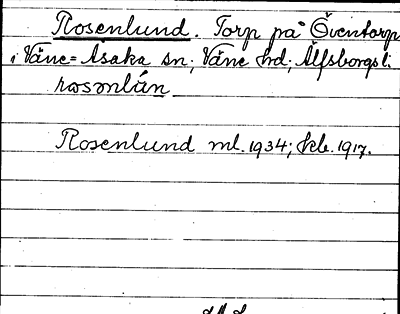 Rosenlund. Torp på Öventorp
i Väne-Åsaka sn; Väne hd; Älfsborgs l.
rosənlún
Rosenlund ml. 1934; kb. 1917.